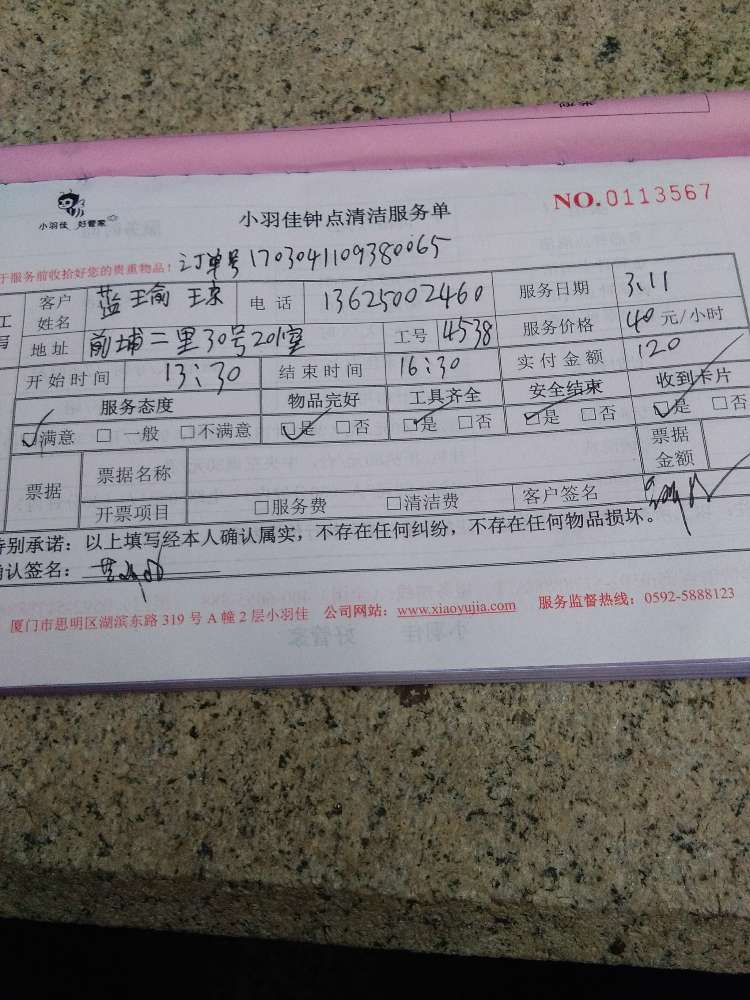 小羽佳 好管家
小羽佳钟点清洁服务单
NO.0113567
于服务前收拾好您的贵重物品！订单号1703041109380065
客户姓名 电话 13625002460 服务日期 3.11
地址 前埔二里30号201室 工号 4538 服务价格 40元/小时
开始时间 13:30 结束时间 16:30 实付金额 120
服务态度 物品完好 工具齐全 安全结束 收到卡片
☑满意 □一般 □不满意 ☑是 □否 ☑是 □否 ☑是 □否 ☑是 □否
票据 票据名称 票据金额
开票项目 □服务费 □清洁费 客户签名
特别承诺：以上填写经本人确认属实，不存在任何纠纷，不存在任何物品损坏。
确认签名：
厦门市思明区湖滨东路319号A幢2层小羽佳 公司网站：www.xiaoyujia.com 服务监督热线：0592-5888123